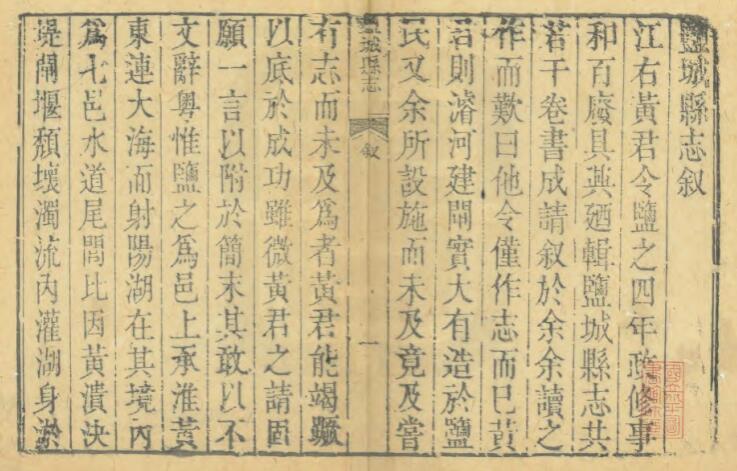 鹽城縣志叙
江右黃君令鹽之四年政修事
和百廢具興廼輯鹽城縣志共
若干卷書成請叙於余余讀之
作而歎曰他令僅作志而已黃
君則濬河建閘實大有造於鹽
民又余所設施而未及竟及嘗
鹽城縣志 叙 一
有志而未及爲者黃君能竭蹷
以底於成功雖微黃君之請固
願一言以附於簡末其敢以不
文辭粤惟鹽之爲邑上承淮黃
東連大海而射陽湖在其境內
爲七邑水道尾閭比因黃潰決
堤閘堰頹壞濁流內灌湖身淤